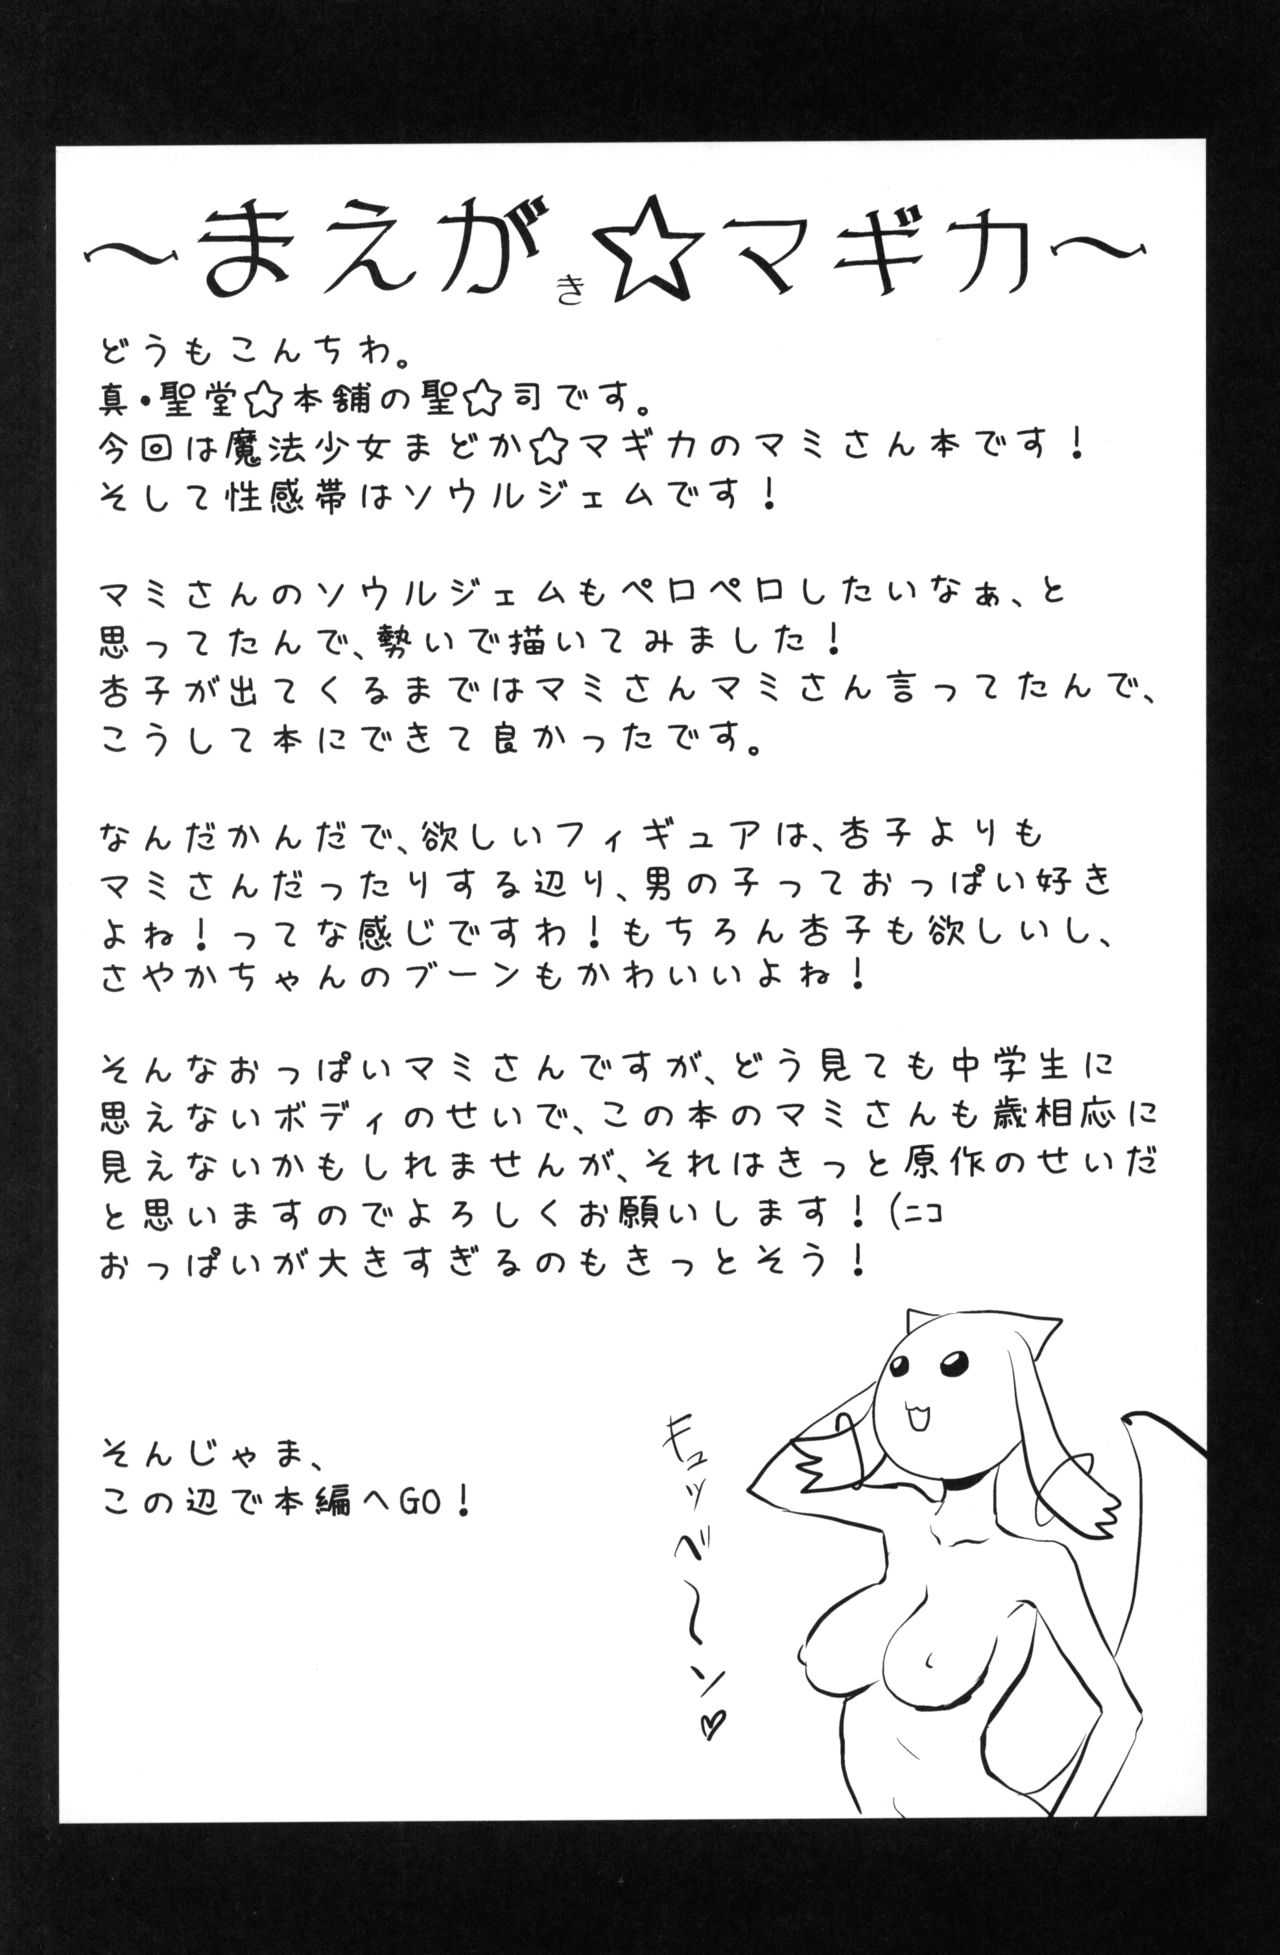 ～まえがき☆マギカ～
どうもこんちわ。
真・聖堂☆本舗の聖☆司です。
今回は魔法少女まどか☆マギカのマミさん本です！
そして性感帯はソウルジェムです！
マミさんのソウルジェムもペロペロしたいなぁ、と
思ってたんで、勢いで描いてみました！
杏子が出てくるまではマミさんマミさん言ってたんで、
こうして本にできて良かったです。
なんだかんだで、欲しいフィギュアは、杏子よりも
マミさんだったりする辺り、男の子っておっぱい好き
よね！ってな感じですわ！もちろん杏子も欲しいし、
さやかちゃんのブーンもかわいいよね！
そんなおっぱいマミさんですが、どう見ても中学生に
思えないボディのせいで、この本のマミさんも歳相応に
見えないかもしれませんが、それはきっと原作のせいだ
と思いますのでよろしくお願いします！(ニコ
おっぱいが大きすぎるのもきっとそう！
そんじゃま、
この辺で本編へGO！
キュッベ～ン♡